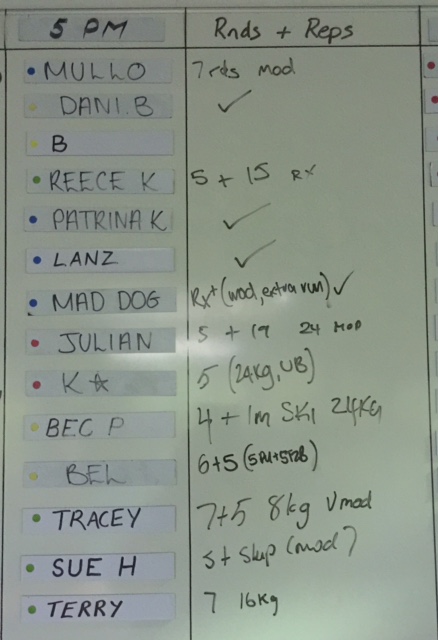 5 PM Rnds + Reps
MULLO 7 rds mod
DANI.B ✓
B
REECE K 5 + 15 Rx
PATRINA K ✓
LANZ ✓
MAD DOG Rx+ (mod, extra run) ✓
JULIAN 5 + 19 24 MOD
K☆ 5 (24kg, UB)
BEC P 4 + 1m SKI 24KG
BEL 6+5
TRACEY 7+5 8kg Vmod
SUE H 5+ (mod)
TERRY 7 16kg